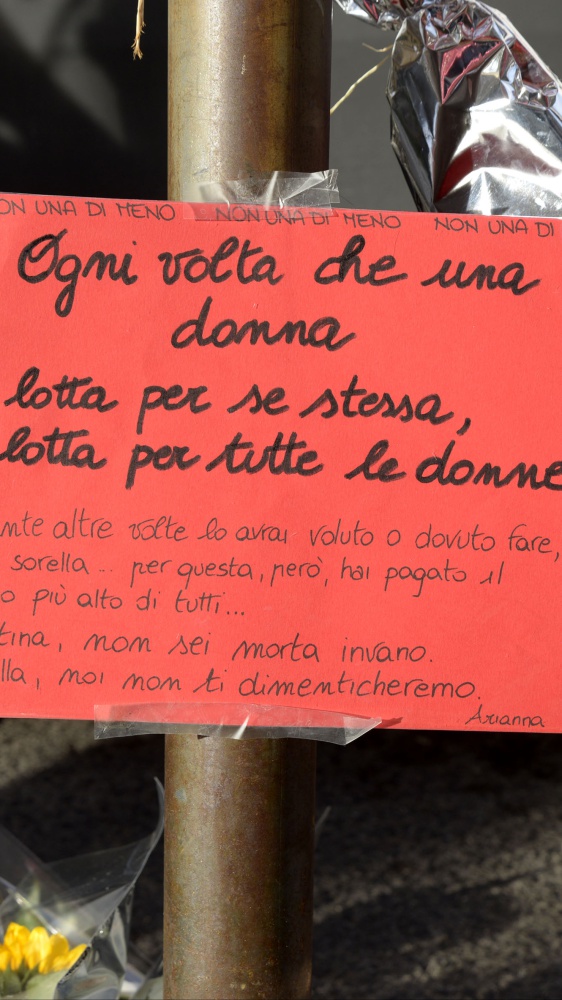 ON UNA DI MENO NON UNA DI MENO NON UNA DI
Ogni volta che una
donna
lotta per se stessa,
lotta per tutte le donne
nte altre volte lo avrai voluto o dovuto fare,
sorella... per questa, però, hai pagato il
o più alto di tutti...
tina, non sei morta invano.
lla, noi non ti dimenticheremo.
Arianna